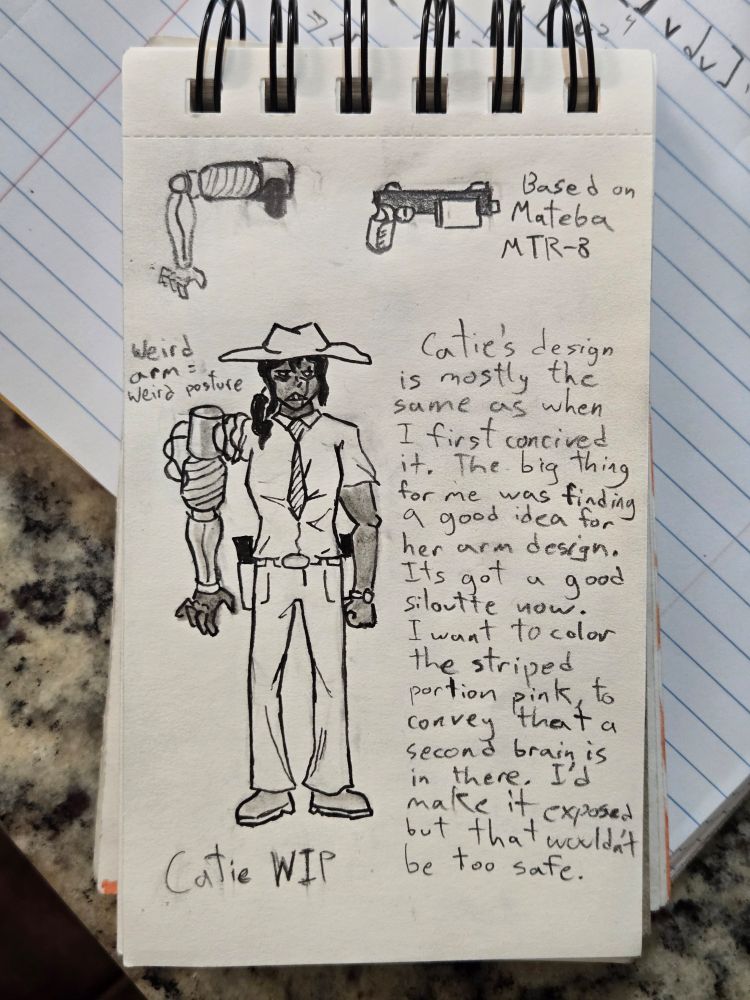 Based on
Mateba
MTR-8
Weird
arm =
weird posture
Catie's design
is mostly the
same as when
I first concived
it. The big thing
for me was finding
a good idea for
her arm design.
Its got a good
siloutte now.
I want to color
the striped
portion pink, to
convey that a
second brain is
in there. I'd
make it exposed
but that wouldn't
be too safe.
Catie WIP